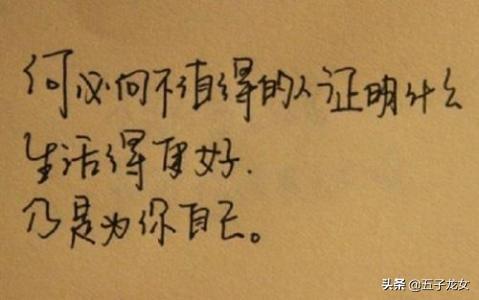 何必向不值得的人证明什么
生活得更好.
乃是为你自己。
头条 @五子龙女